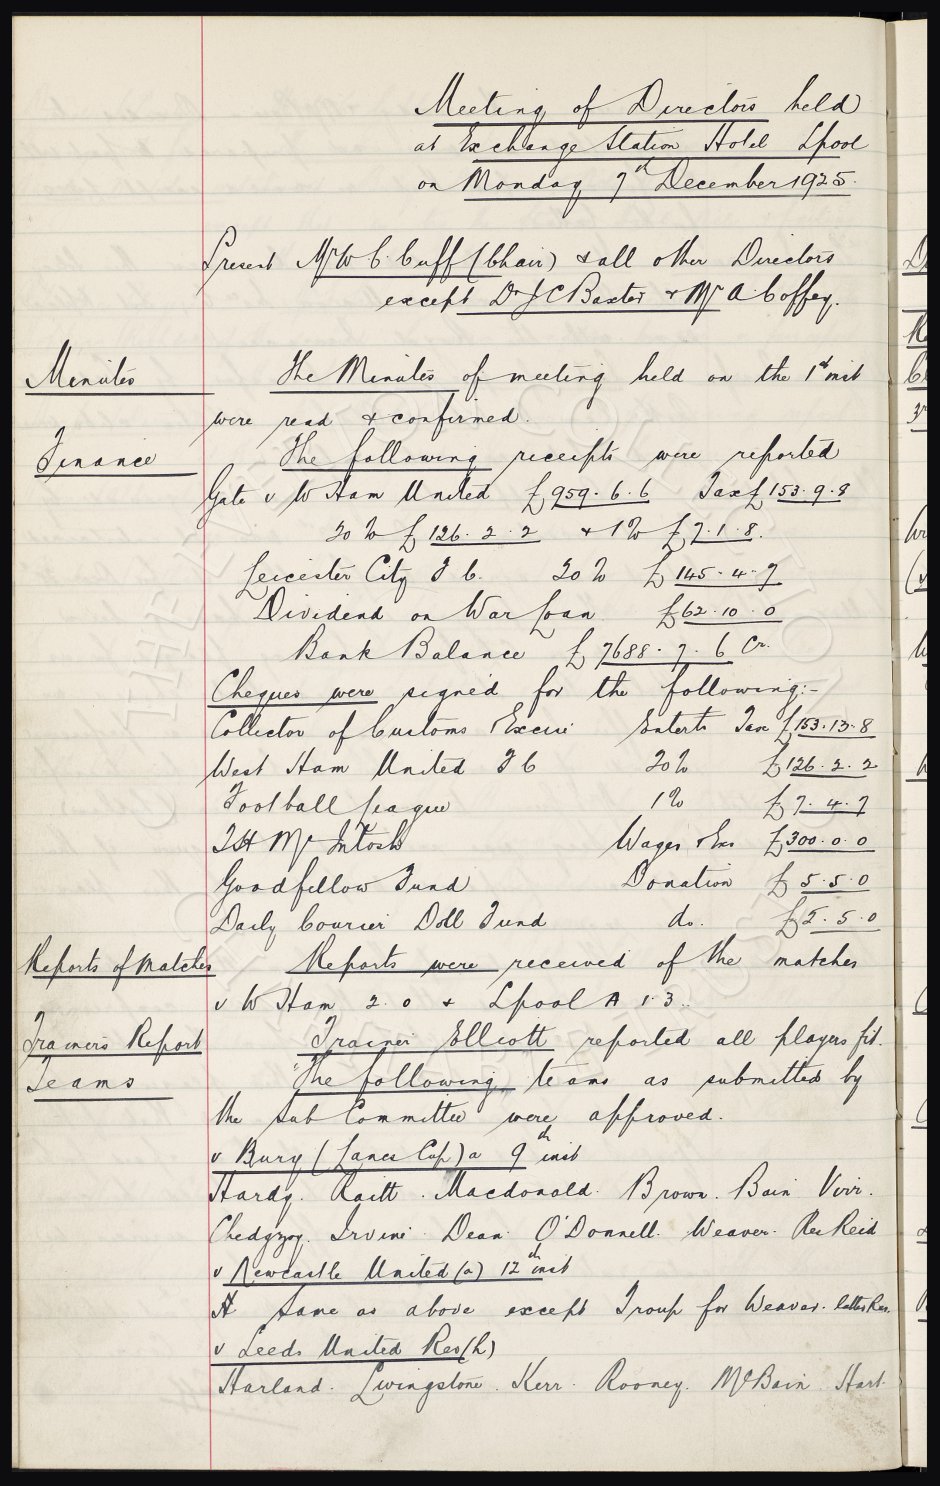 Meeting of Directors held
at Exchange Station Hotel Lpool
on Monday 7th December 1925.
Present Mr W C Cuff (Chair) & all other Directors
except Dr J C Baxter & Mr A Coffey.
Minutes
The Minutes of meeting held on the 1st inst
were read & confirmed.
Finance
The following receipts were reported
Gate v W Ham United £959.6.6 Tax £153.9.8
20% £126.2.2 & 1% £7.1.8.
Leicester City F C. 20% £145.4.7
Dividend on War Loan £62.10.0
Bank Balance £7688.7.6 Cr.
Cheques were signed for the following:-
Collector of Customs & Excise Enterts Tax £153.13.8
West Ham United F C 20% £126.2.2
Football League 1% £7.4.7
T H McIntosh Wages & Exs £300.0.0
Goodfellow Fund Donation £5.5.0
Daily Courier Doll Fund do. £5.5.0
Reports of Matches
Reports were received of the matches
v W Ham 2.0 & Lpool A 1.3.
Trainer's Report
Trainer Elliott reported all players fit.
Teams
The following teams as submitted by
the Sub Committee were approved.
v Bury (Lancs Cup) a 9th inst
Hardy. Raitt. Macdonald. Brown. Bain Virr.
Chedgzoy. Irvine. Dean. O'Donnell. Weaver. Res Reid
v Newcastle United (a) 12th inst
A Same as above except Troup for Weaver. latter Res.
v Leeds United Res (h)
Harland. Livingstone. Kerr. Rooney. McBain. Hart.